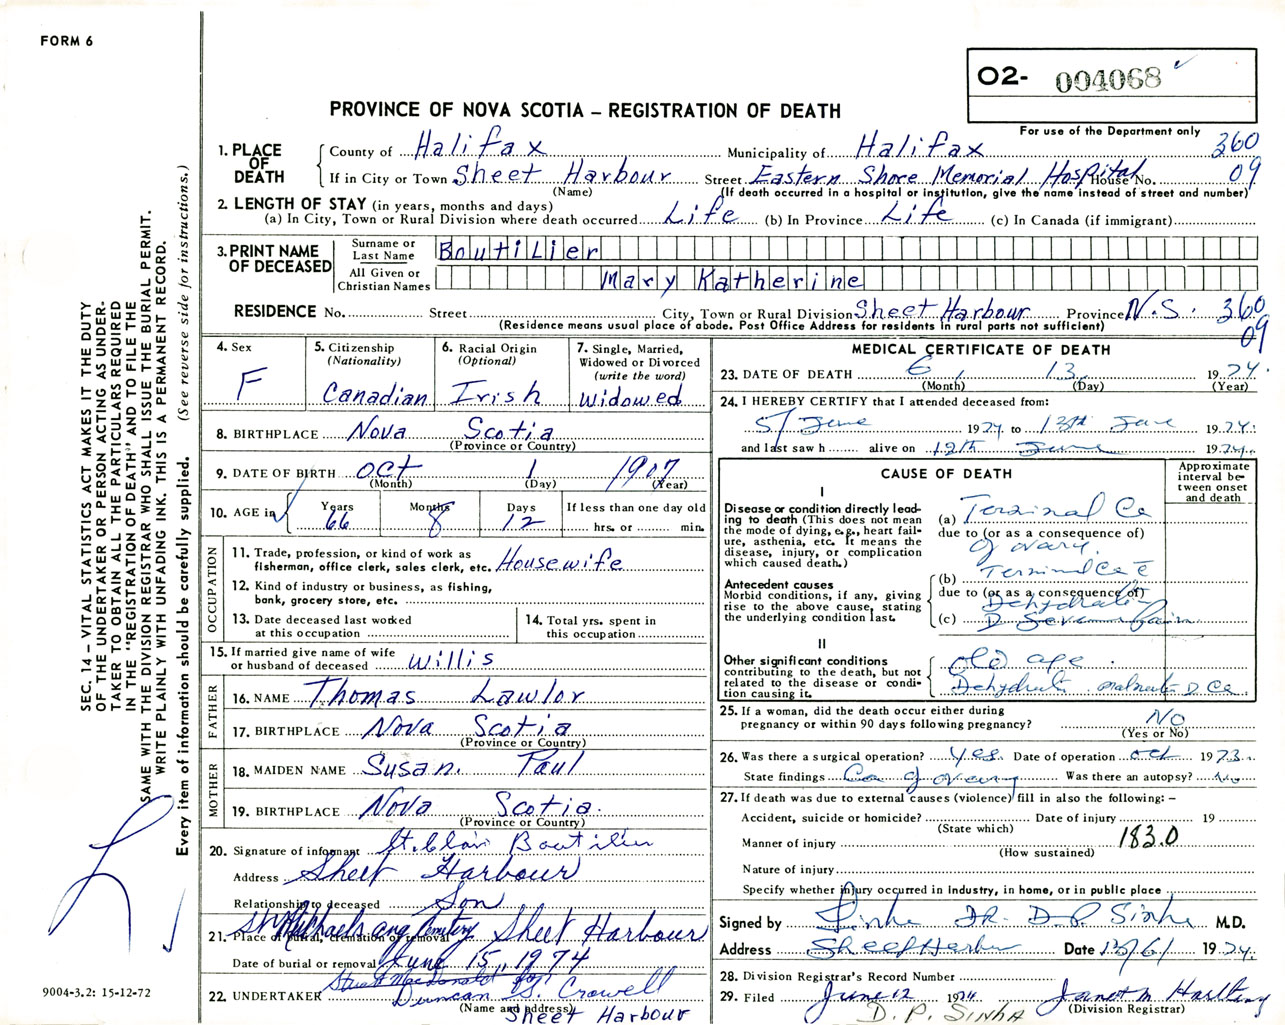 FORM 6
O2- 004068
PROVINCE OF NOVA SCOTIA – REGISTRATION OF DEATH
For use of the Department only
1. PLACE OF DEATH
County of Halifax Municipality of Halifax 360
If in City or Town Sheet Harbour Street Eastern Shore Memorial Hospital House No. 09
(Name) (If death occurred in a hospital or institution, give the name instead of street and number)
2. LENGTH OF STAY (in years, months and days)
(a) In City, Town or Rural Division where death occurred Life (b) In Province Life (c) In Canada (if immigrant)
3. PRINT NAME OF DECEASED
Surname or Last Name Boutilier
All Given or Christian Names Mary Katherine
RESIDENCE No. Street City, Town or Rural Division Sheet Harbour Province N.S. 360
(Residence means usual place of abode. Post Office Address for residents in rural parts not sufficient) 09
4. Sex F
5. Citizenship (Nationality) Canadian
6. Racial Origin (Optional) Irish
7. Single, Married, Widowed or Divorced (write the word) Widowed
8. BIRTHPLACE Nova Scotia
(Province or Country)
9. DATE OF BIRTH Oct 1 1907
(Month) (Day) (Year)
10. AGE in Years 66 Months 8 Days 12 If less than one day old hrs. or min.
OCCUPATION
11. Trade, profession, or kind of work as fisherman, office clerk, sales clerk, etc. Housewife
12. Kind of industry or business, as fishing, bank, grocery store, etc.
13. Date deceased last worked at this occupation
14. Total yrs. spent in this occupation
15. If married give name of wife or husband of deceased Willis
FATHER
16. NAME Thomas Lawlor
17. BIRTHPLACE Nova Scotia
(Province or Country)
MOTHER
18. MAIDEN NAME Susan Paul
19. BIRTHPLACE Nova Scotia.
(Province or Country)
20. Signature of informant St. Clair Boutilier
Address Sheet Harbour
Relationship to deceased Son
21. Place of burial, cremation or removal St Michaels Cemetery Sheet Harbour
Date of burial or removal June 15, 1974
22. UNDERTAKER Duncan G. Crowell
(Name and address) Sheet Harbour
MEDICAL CERTIFICATE OF DEATH
23. DATE OF DEATH 6 13 1974.
(Month) (Day) (Year)
24. I HEREBY CERTIFY that I attended deceased from:
5/ June 1974 to 13th June 1974.
and last saw h alive on 12th June 1974.
CAUSE OF DEATH
Approximate interval between onset and death
I
Disease or condition directly leading to death (This does not mean the mode of dying, e.g., heart failure, asthenia, etc. It means the disease, injury, or complication which caused death.)
(a) Terminal Ca
due to (or as a consequence of)
of ovary.
Antecedent causes
Morbid conditions, if any, giving rise to the above cause, stating the underlying condition last.
Terminal Ca c̄
(b)
due to (or as a consequence of)
Dehydration
(c) D Severe pain
II
Other significant conditions contributing to the death, but not related to the disease or condition causing it.
Old age.
Dehydrate D Ca.
25. If a woman, did the death occur either during pregnancy or within 90 days following pregnancy? NO
(Yes or No)
26. Was there a surgical operation? Yes. Date of operation Oct 1973.
State findings Ca of ovary Was there an autopsy? No
27. If death was due to external causes (violence) fill in also the following: –
Accident, suicide or homicide? Date of injury 19
(State which)
Manner of injury 183.0
(How sustained)
Nature of injury
Specify whether injury occurred in industry, in home, or in public place
Signed by Sinha DR. D.P. Sinha M.D.
Address Sheet Harbor Date 13/6/ 1974.
28. Division Registrar's Record Number
29. Filed June 12 1974 Janet M Hartling
D. P. SINHA (Division Registrar)
SEC. 14 – VITAL STATISTICS ACT MAKES IT THE DUTY
OF THE UNDERTAKER OR PERSON ACTING AS UNDER-
TAKER TO OBTAIN ALL THE PARTICULARS REQUIRED
IN THE "REGISTRATION OF DEATH" AND TO FILE THE
SAME WITH THE DIVISION REGISTRAR WHO SHALL ISSUE THE BURIAL PERMIT.
WRITE PLAINLY WITH UNFADING INK. THIS IS A PERMANENT RECORD.
Every item of information should be carefully supplied. (See reverse side for instructions.)
9004-3.2: 15-12-72